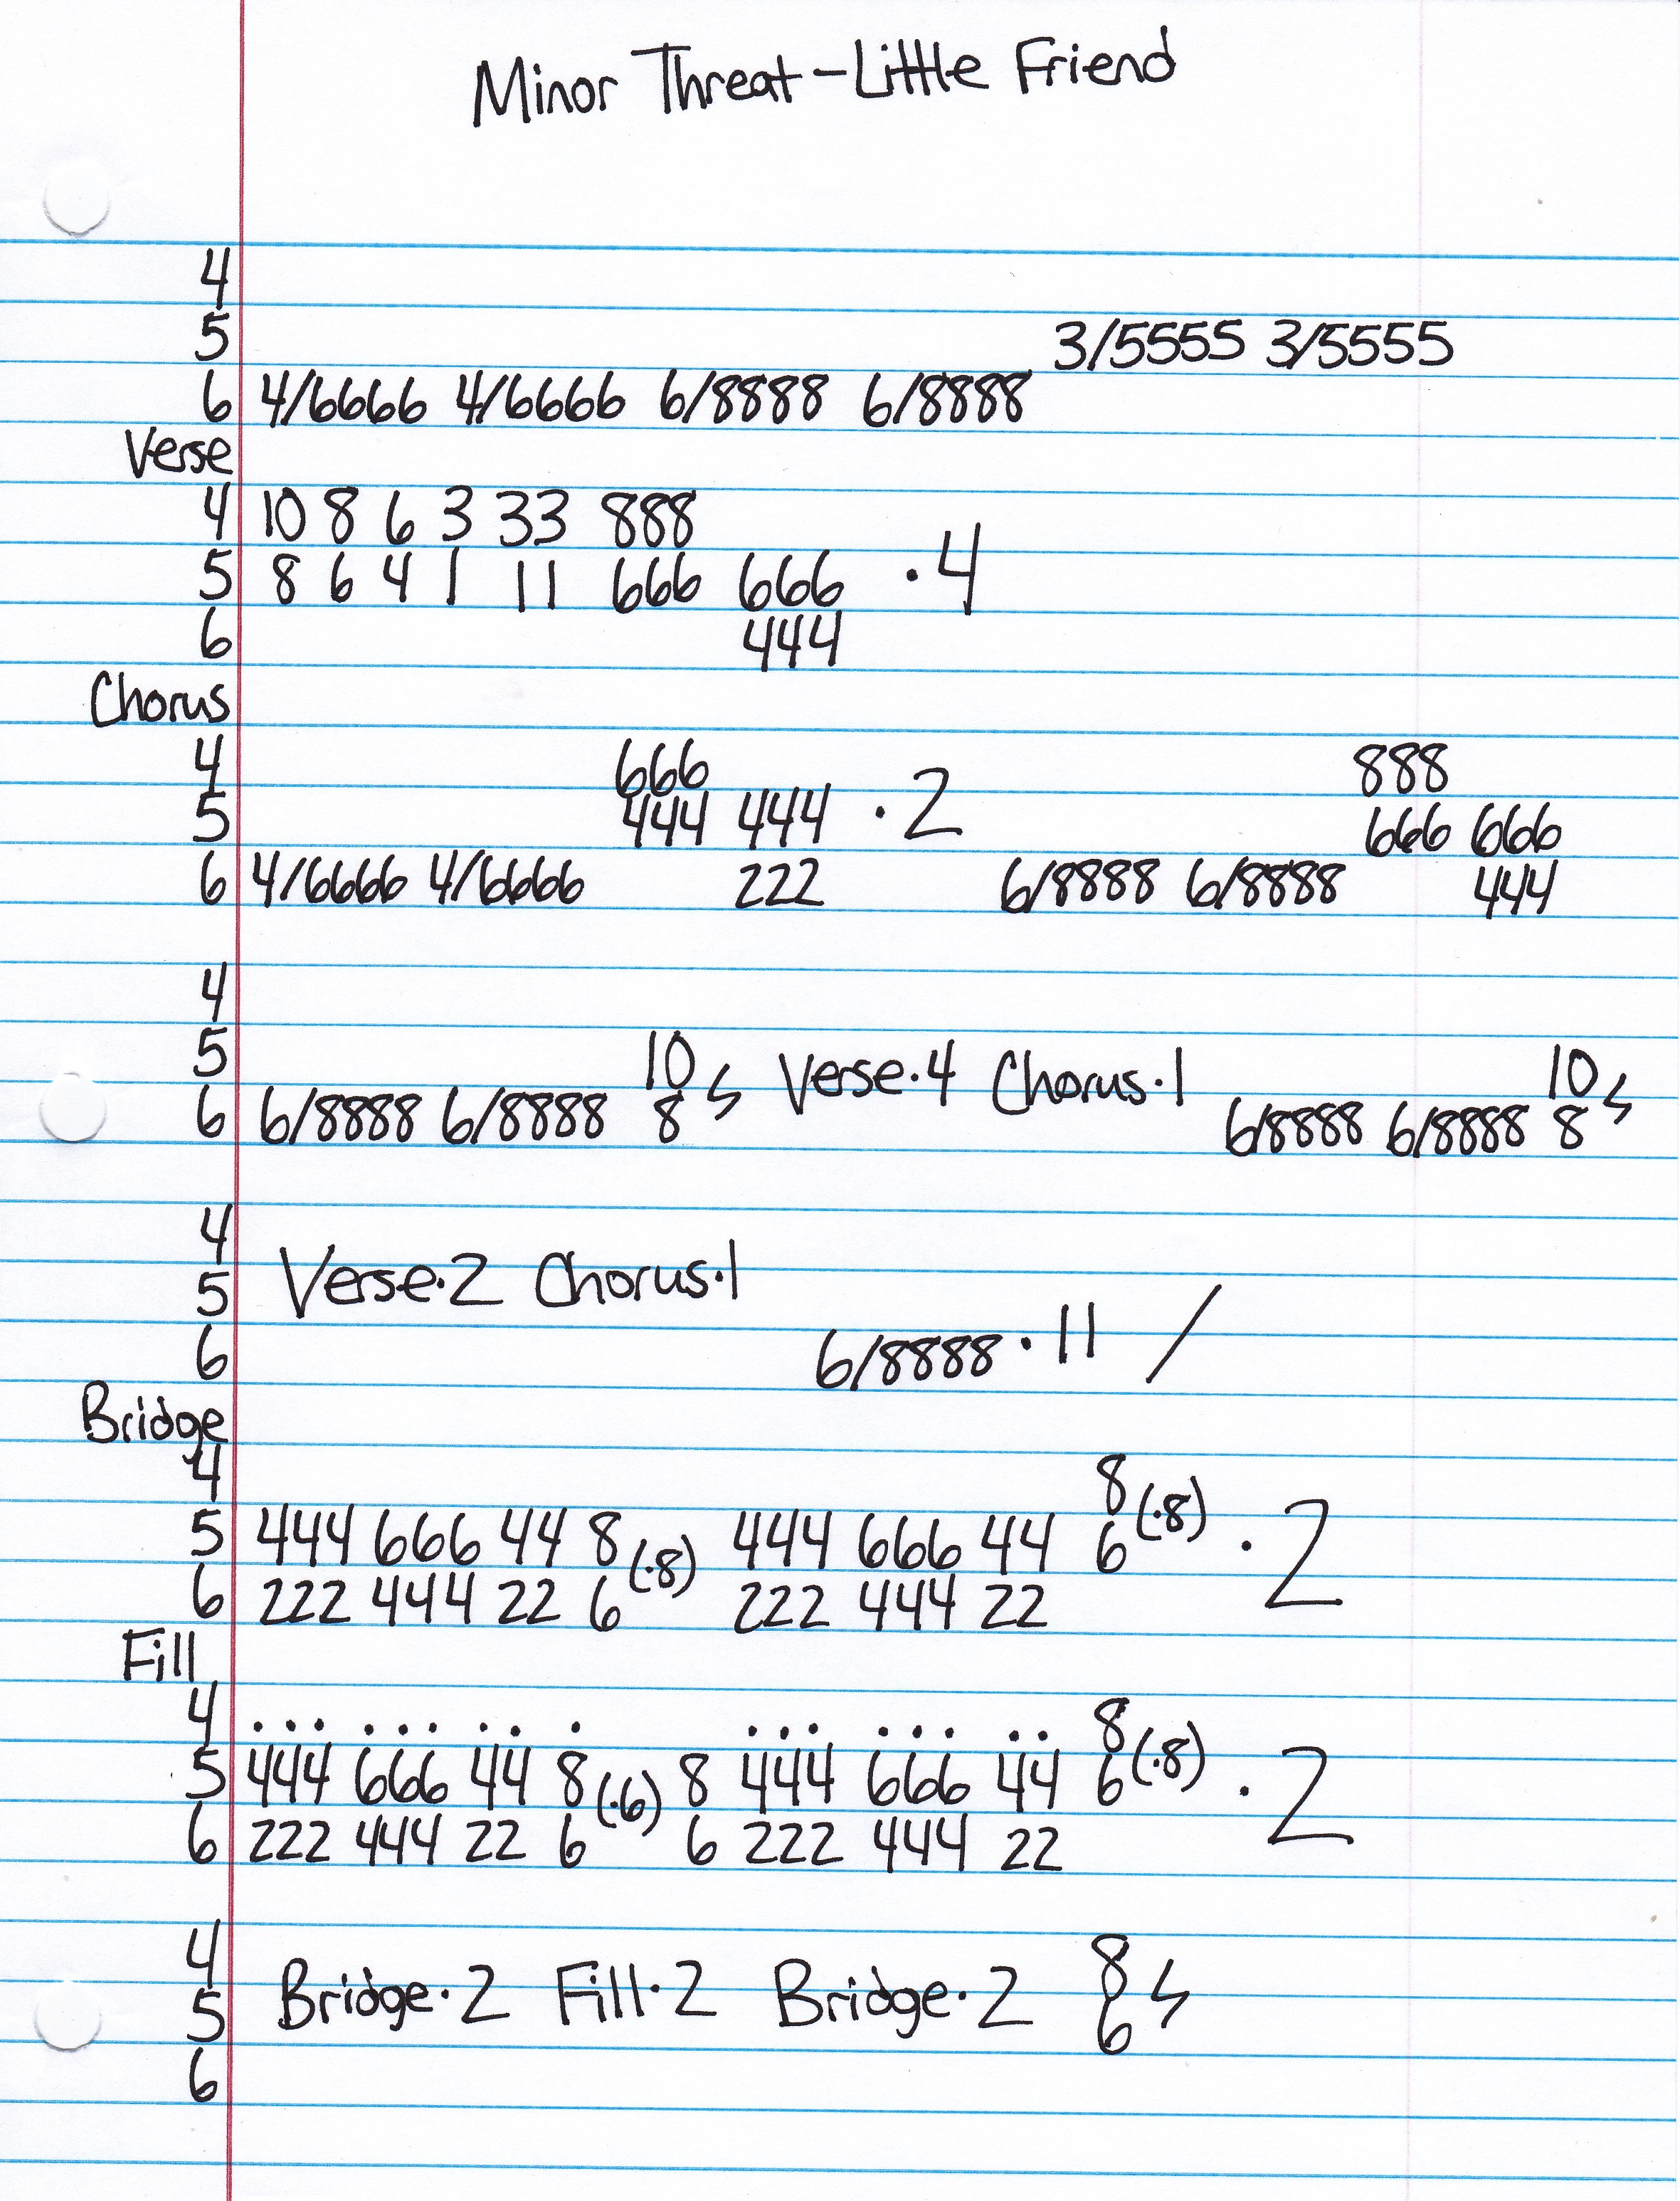 Minor Threat - Little Friend
4
5 3/5555 3/5555
6 4/6666 4/6666 6/8888 6/8888
Verse
4 10 8 6 3 33 888
5 8 6 4 1 11 666 666 · 4
6 444
Chorus
4 666 888
5 444 444 · 2 666 666
6 4/6666 4/6666 222 6/8888 6/8888 444
4
5 10 Verse·4 Chorus·1 10
6 6/8888 6/8888 8 6/8888 6/8888 8
4
5 Verse·2 Chorus·1
6 6/8888 · 11 /
Bridge
4 8
5 444 666 44 8 (·8) 444 666 44 6 (·8) · 2
6 222 444 22 6 222 444 22
Fill
4 . . . . . . . . . . . . . . . . . 8
5 444 666 44 8 (·6) 8 444 666 44 6 (·8) · 2
6 222 444 22 6 6 222 444 22
4 8
5 Bridge·2 Fill·2 Bridge·2 6
6